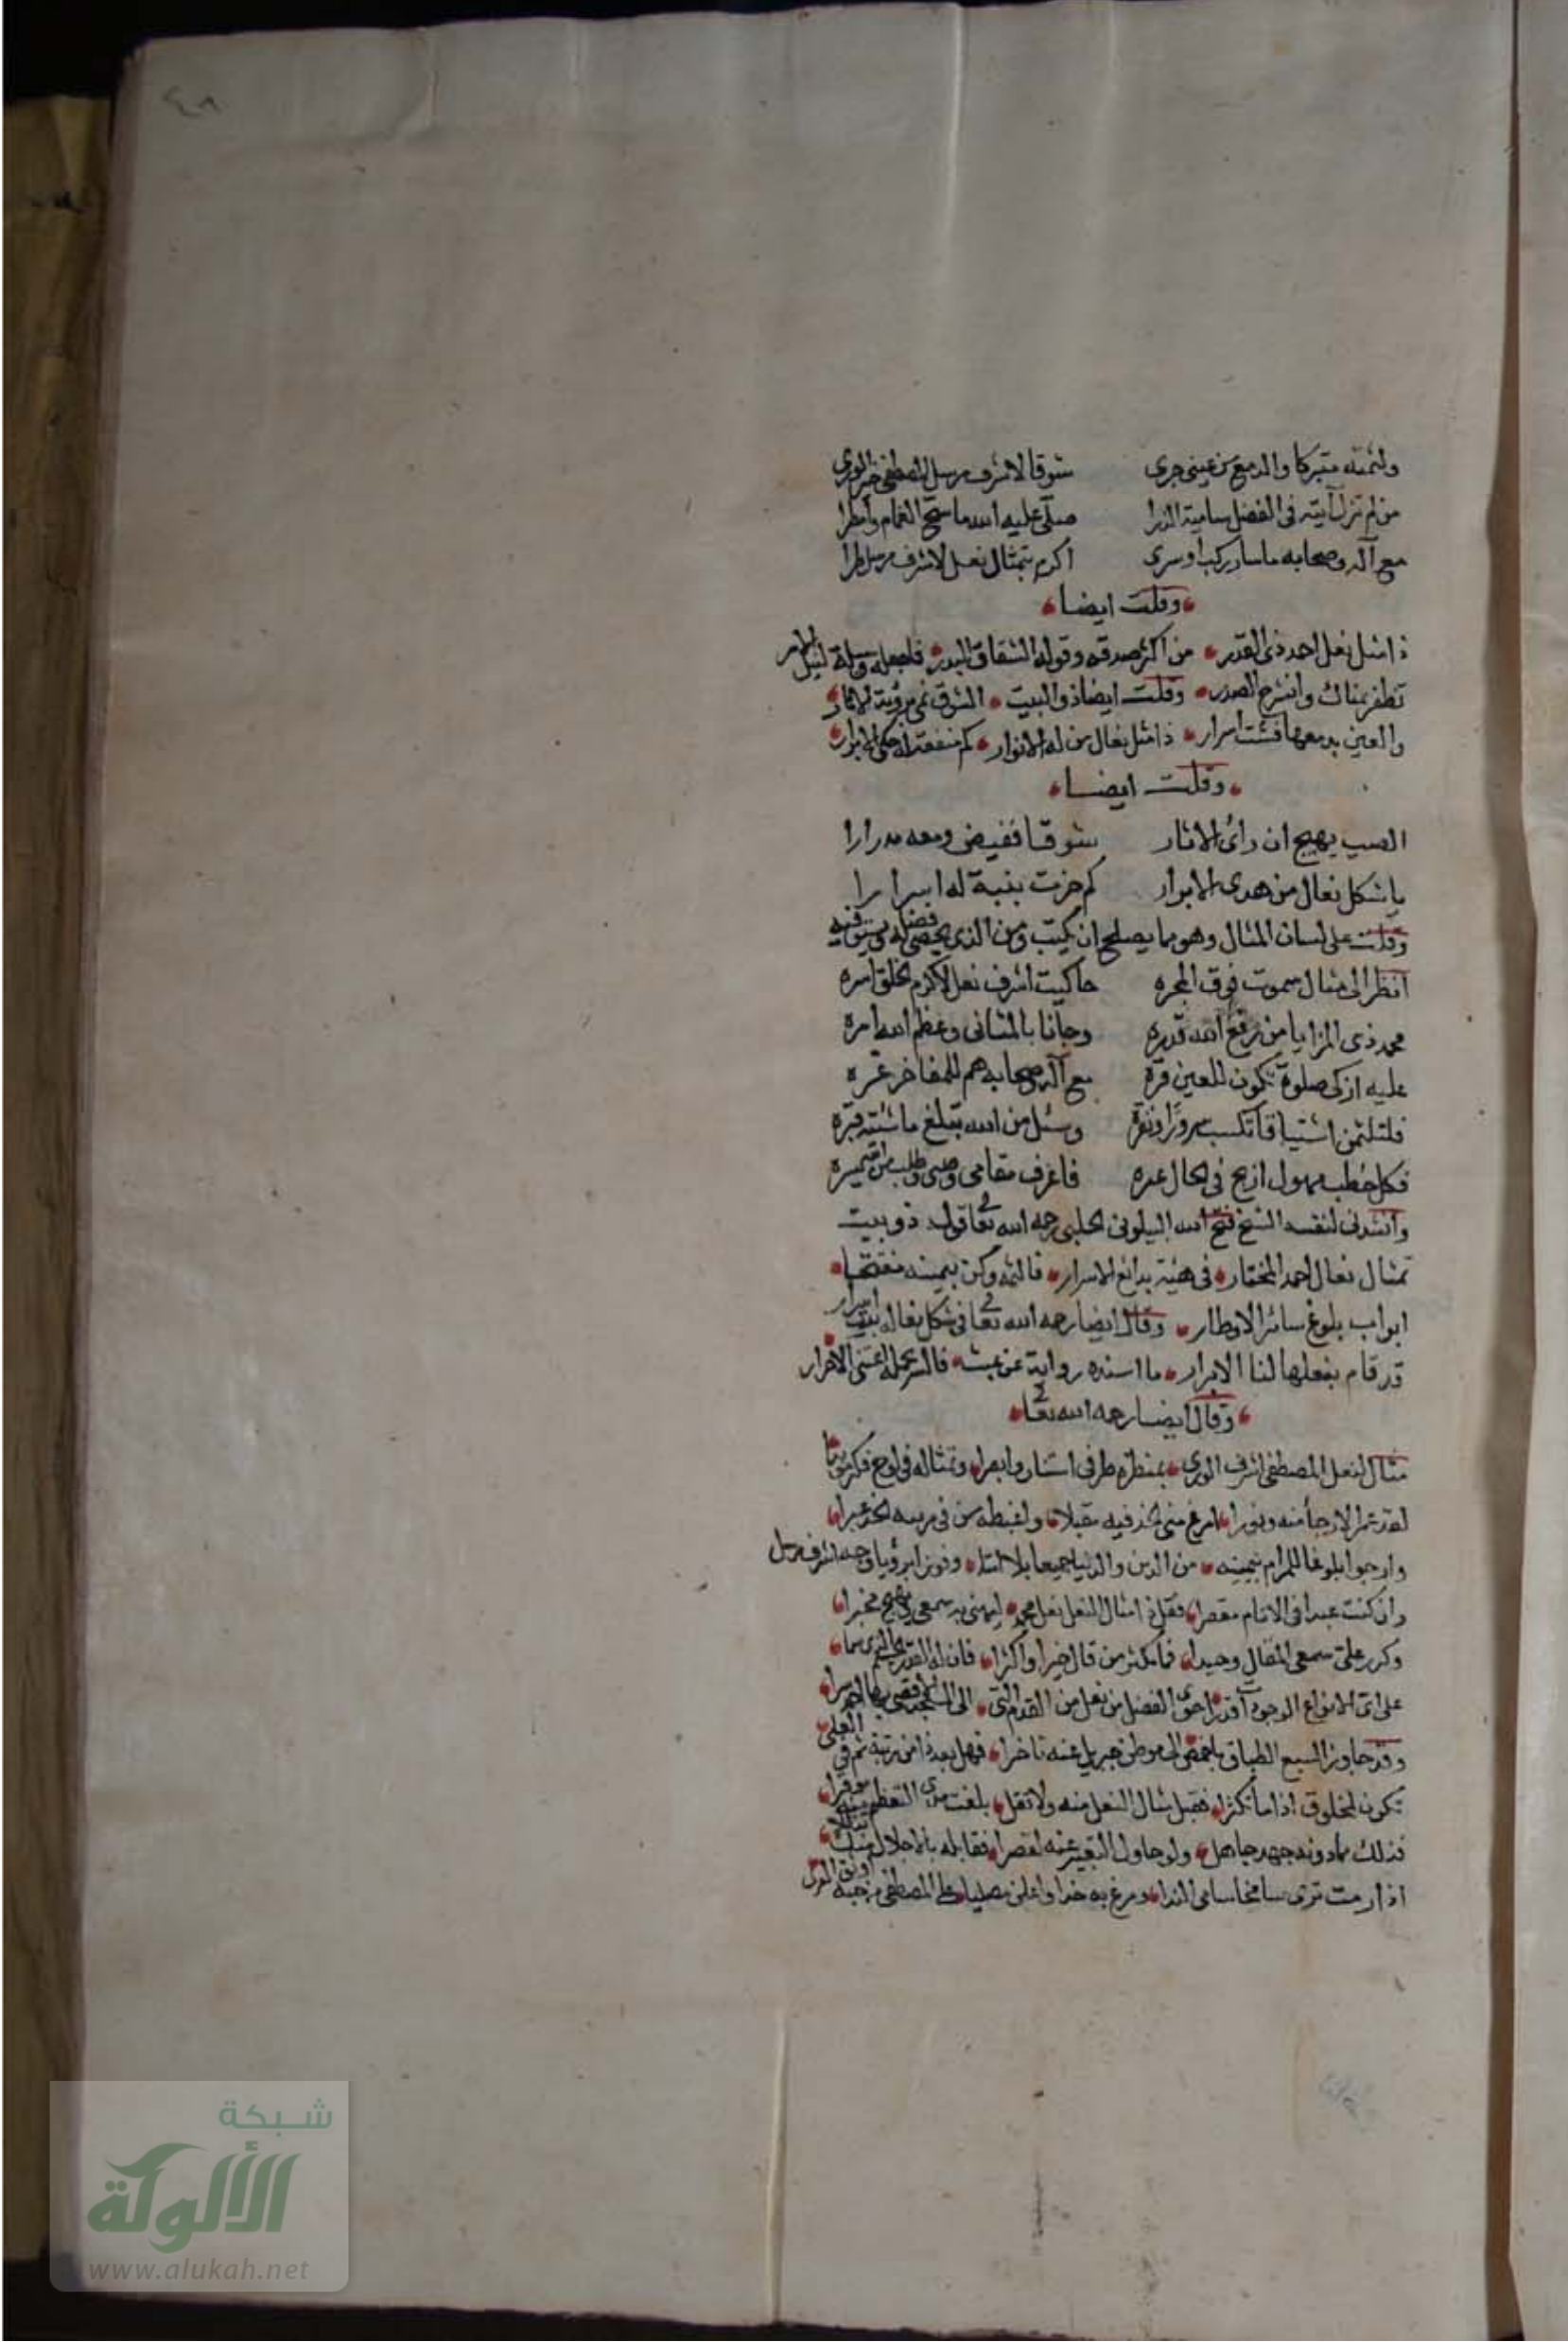 ٤٨
ولثمته متبركا والدمع من عيني جرى شوقا لاشرف مرسل المصطفى خير الورى
من لم تزل آيته في الفضل سامية الذرا صلى عليه الله ما سح الغمام وامطرا
مع آله وصحابه ما سار ركب او سرى اكرم بتمثال نعل لاشرف مرسل طرا
وقلت ايضا
ذا مثل نعل احمد ذي القدر من اكثر صدقه وقوله انشقاق البدر فاجعله وسيلة لنيل الامر
تظفر بمناك وانشرح الصدر وقلت ايضا ذو البيت الشوق نمى برؤية الاثار
والعين بدمعها فشت اسرار ذا مثل نعال من له الانوار كم منفعة له حكى الابرار
وقلت ايضا
الصب يهيج ان رأى الاثار شوقا ففيض دمعه مدرارا
يا شكل نعال من هدى الابرار كم حزت بنسبة له اسرارا
وقلت على لسان المثال وهو مما يصلح ان يكتب ومن الذي يحصي فضله ويستوفيه
انظر الى مثال سموت فوق المجره حاكيت اشرف نعل لاكرم الخلق اسره
محمد ذي المزايا من رفع الله قدره وجانا بالمثاني وعظم الله امره
عليه ازكى صلوة تكون للعين قرة مع آله وصحابه هم للمفاخر غره
فلتلثمن اشتياقا تكسب سرورا ونضرة وسئل من الله تبلغ ما شئته
فكل خطب مهول ازيح في الحال عده فاعرف مقامي
وانشدني لنفسه الشيخ فتح الله البيلوني الحلبي رحمه الله تعا قوله ذو بيت
تمثال نعال احمد المختار في هيئة بدائع الاسرار فالثمه وكن بيمينه مفتتحا
ابواب بلوغ سائر الاوطار وقال ايضا رحمه الله تعا في شكل نعال بيت اسرار
قد قام بفعلها لنا الابرار ما اسنده رواية عن عبث فالسر
وقال ايضا رحمه الله تعا
مثال لنعل المصطفى اشرف الورى بمنظره طرفي استنار وابصرا وتمثاله في لوح فكري
لقد غمر الارجا منه ونورا امرغ مني الخد فيه مقبلا واغبطه من في
وارجوا بلوغا للمرام بيمينه من الدين والدنيا جميعا بلا امترا وفوزا برؤيا وجه اشرف مرسل
وان كنت عبدا في الانام مقصرا فقل ذا مثال النعل نعل محمد ليهنى به سمعي
وكرر على سمعي المقال وحيدا فما كثر من قال خيرا واكثرا فان له القدر
على اي الانواع الوجود قدرا حوى الفضل من نعل من القدم التي الى المسجد الاقصى بها احمد سرا
وقد جاوز السبع الطباق باخمص الى موطن جبريل عنه تاخرا فهل بعد ذا من رتبة ثم في العلى
تكون لمخلوق اذا ما تكثرا فقبل مثال النعل منه ولا تقل بلغت مدى التعظيم
فذلك مما دونه جهد جاهل ولو حاول التعبير عنه لقصرا فقابله بالاجلال منك
اذا رمت ترى سامخا سامى الذرا ومرغ به خدا واعلن مصليا على المصطفى
شبكة
الألوكة
www.alukah.net